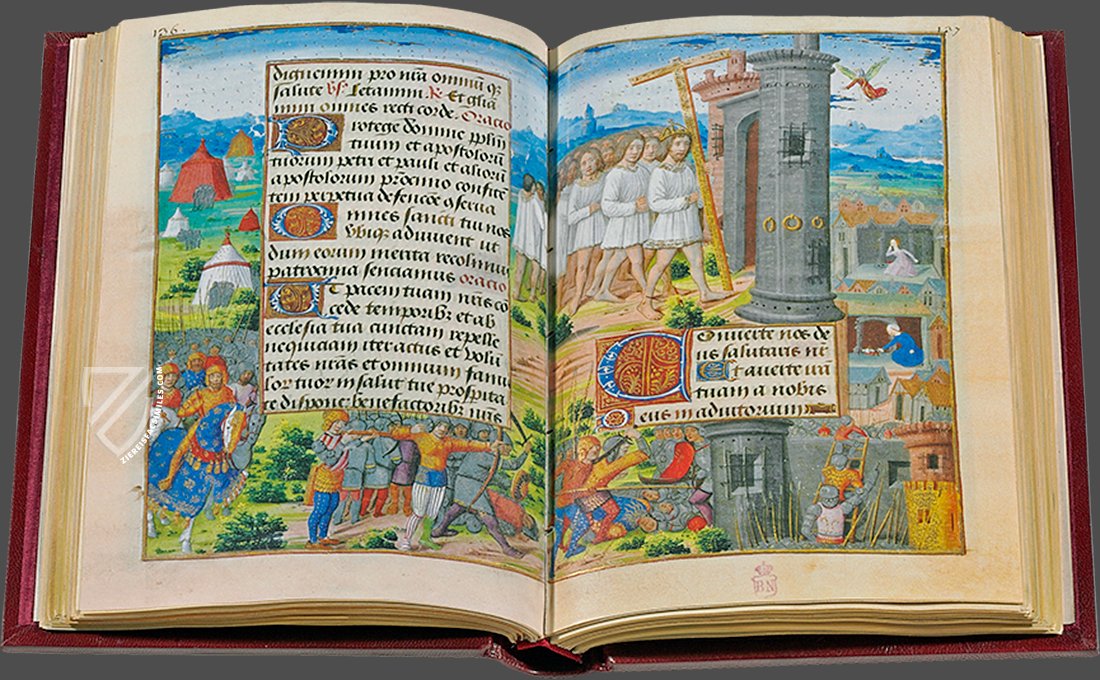 156.
dignemini pro nr̄a omniū qꝫ
salute ℣. Letamini ℟. Et glīa
mini omnes recti corde. Oracio
Protege domine pplm̄
tuum et apostolorū
tuorum petri et pauli et aliorū
apostolorum pr̄ocinio confidē
tem perpetua defencōe ꝯserua
Omnes sancti tui nos
vbiqꝫ adiuuent ut
dum eorum merita recolimus
patrocinia senciamus oracio
Et pacem tuam nr̄is cō
cede temporibꝫ et ab
ecclesia tua cunctam repelle
nequiciam iter actus et volū
tates nr̄as et omnium famu
lor tuor in salut̄ tue prospita
te dispone benefactoribꝫ nr̄is
Conuerte nos de
us salutaris nr̄
Et auerte irā
tuam a nobis
Deus in adiutorium
BN
ZIEREIS FACSIMILES.COM